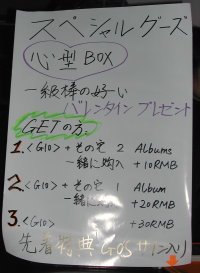 スペシャルグーズ
心型 BOX
一級棒の好い
バレンタイン プレゼント
GETの方
1. <G10> + その它 2 Albums
一緒に购入 +10RMB
2. <G10> + その它 1 Album
一緒に购入 +20RMB
3. <G10> +30RMB
先着特典 GOS サイン入り